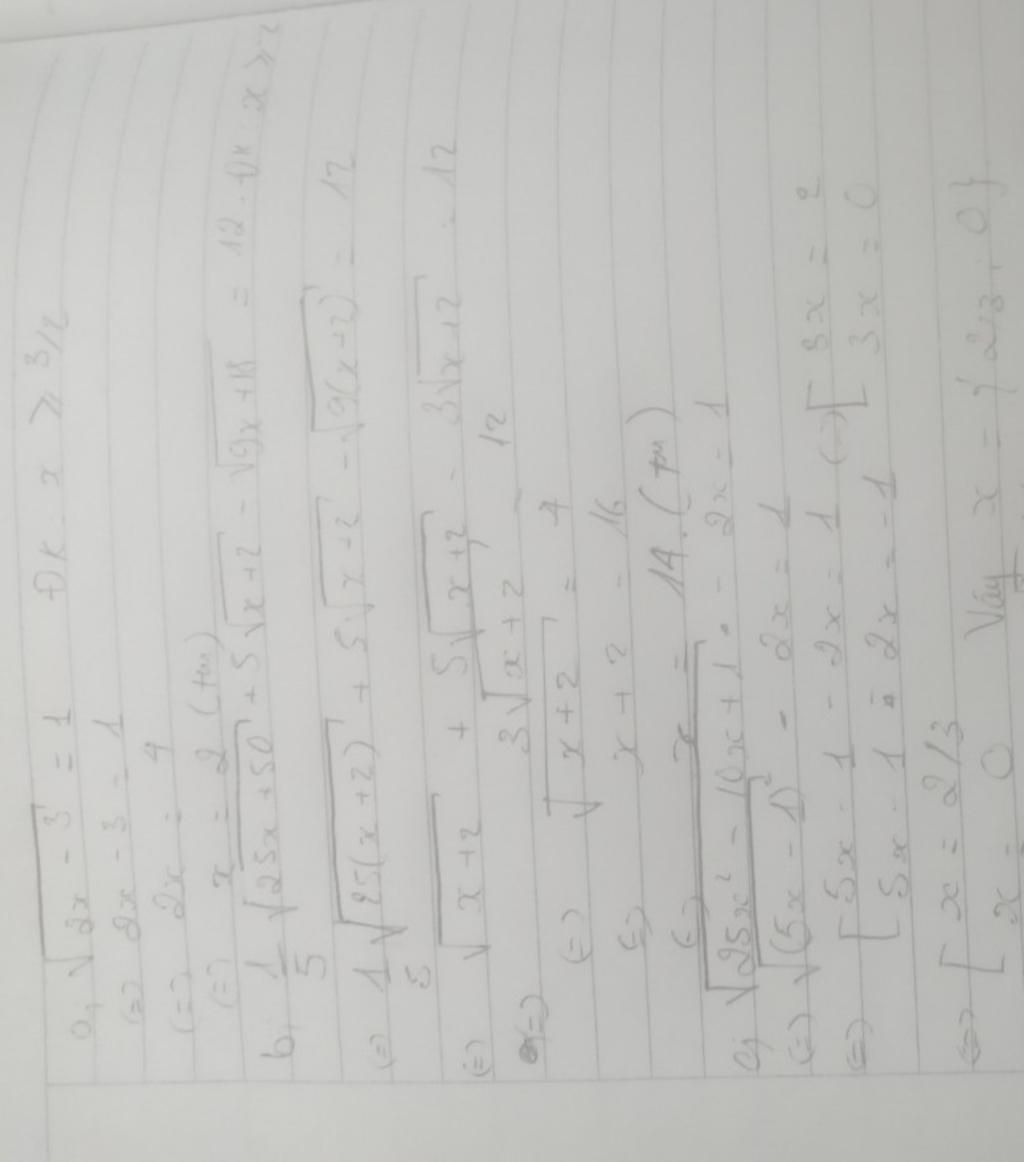 a, √(2x - 3) = 1 ĐK: x ≥ 3/2
(=) 2x - 3 = 1
(=) 2x = 4
(=) x = 2 (tm)
b, 1/5 √(25x + 50) + 5√(x + 2) - √(9x + 18) = 12. ĐK: x ≥
(=) 1/5 √(25(x + 2)) + 5√(x + 2) - √(9(x + 2)) = 12
(=) √(x + 2) + 5√(x + 2) - 3√(x + 2) = 12
(=) 3√(x + 2) = 12
(=) √(x + 2) = 4
(=) x + 2 = 16
(=) x = 14. (tm)
c, √(25x² - 10x + 1) - 2x = 1
(=) √(5x - 1)² - 2x = 1
(=) [ 5x - 1 - 2x = 1 (=) [ 3x = 2
[ 5x - 1 = 2x = -1 3x = 0
(=) [ x = 2/3
[ x = 0 Vậy x = { 2/3; 0 }